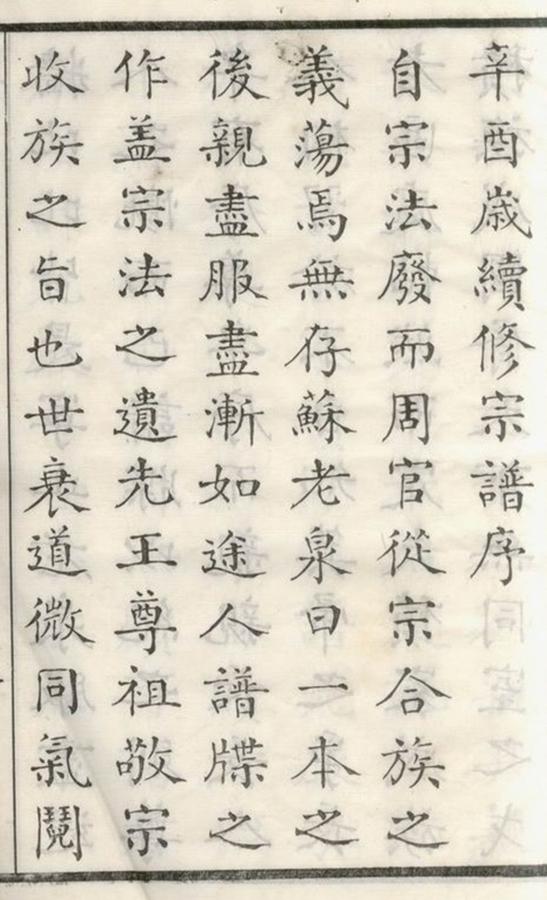 辛酉歲續修宗譜序
自宗法廢而周官從宗合族之
義蕩焉無存蘇老泉曰一本之
後親盡服盡漸如途人譜牒之
作盖宗法之遺先王尊祖敬宗
收族之旨也世衰道微同氣鬩